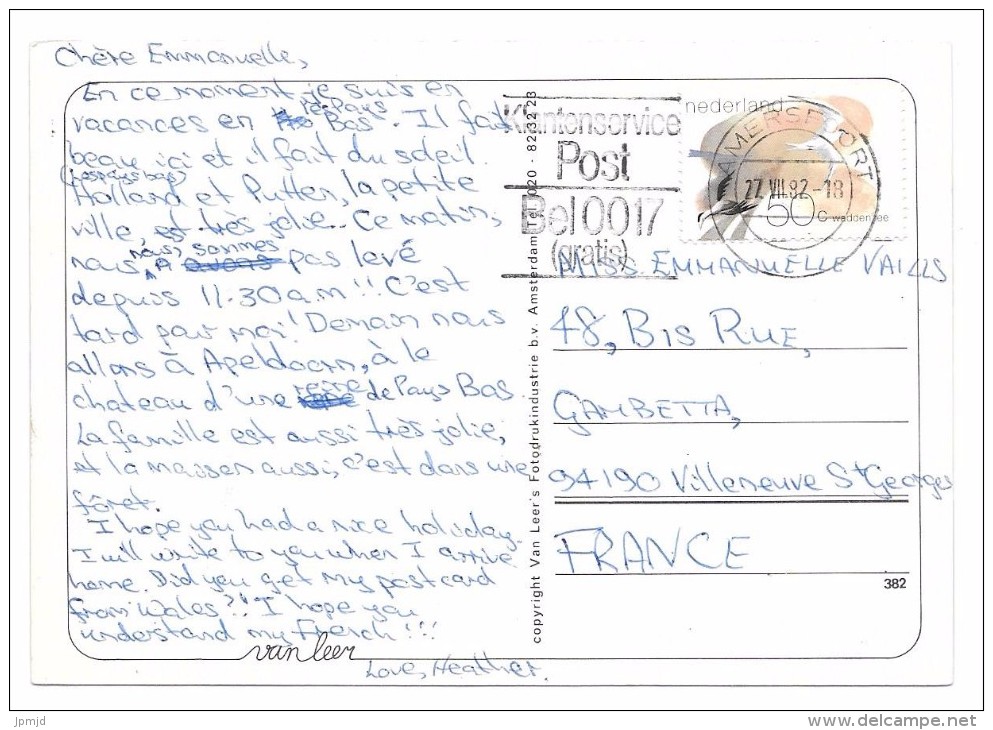 Chère Emmanuelle,
En ce moment je suis en
vacances en les Pays
Bas. Il fait
beau ici et il fait du soleil.
(Les Pays bas)
Holland et Putten, la petite
ville, est très jolie. Ce matin,
nous, nous sommes
pas levé
depuis 11.30 a.m!! C'est
tard pour moi! Demain nous
allons à Apeldoorn, à le
chateau d'une reine de Pays Bas.
La famille est aussi très jolie,
et la maison aussi, c'est dans une
fôret.
I hope you had a nice holiday.
I will write to you when I arrive
home. Did you get my postcard
from Wales?! I hope you
understand my French!!!
Love, Heather.
van Leer
copyright Van Leer's Fotodrukindustrie b.v. Amsterdam Tel. 020 - 82 32 23
Klantenservice
Post
Bel 0017
(gratis)
nederland
AMERSFOORT
27.VII.82.-18
50 c waddenzee
MISS. EMMANUELLE VAILLS
48, BIS RUE,
GAMBETTA,
94190 Villeneuve St Georges
FRANCE
382
jpmjd
delcampe.net